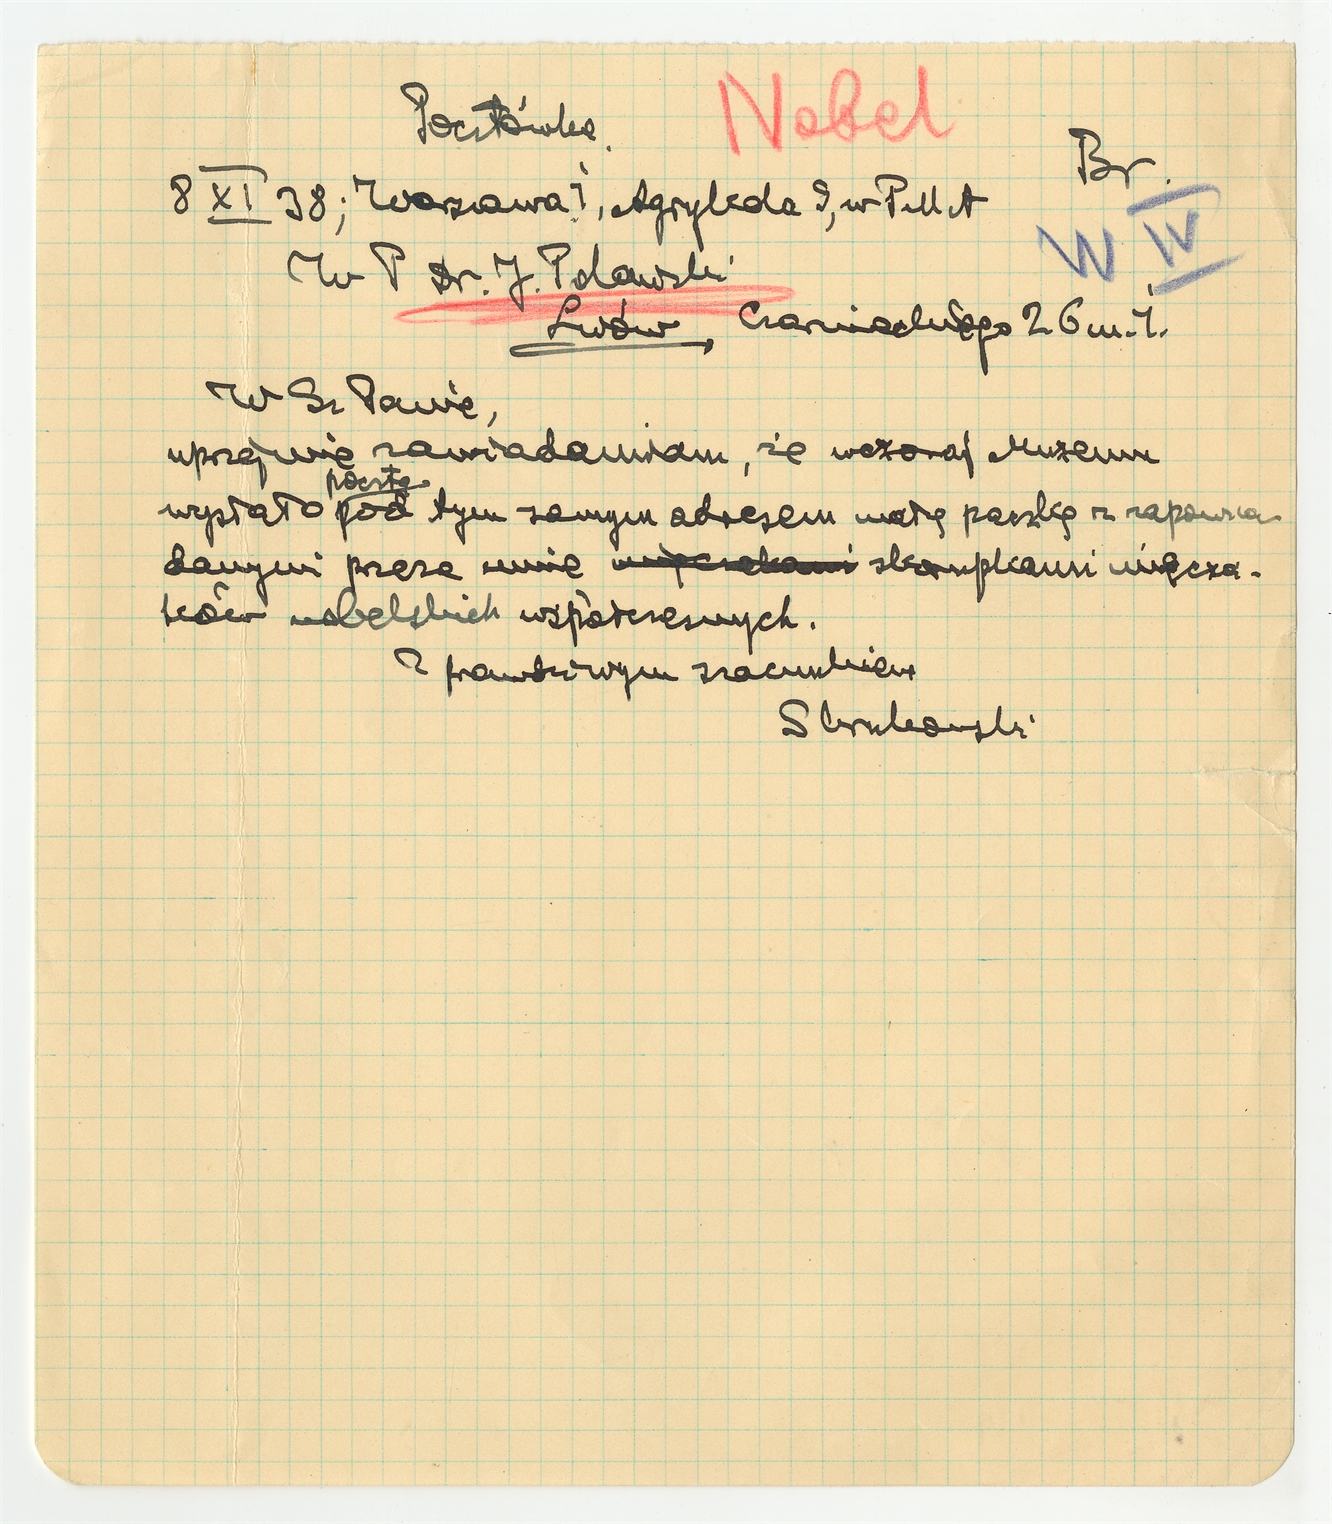 Pocztówka.
Nobel
Br.
8 XI 38; Warszawa 1, Agrykola 9, w PMA
W IV
W P Dr. J. Polański
Lwów, Czarnieckiego 26 m. 1.
W Sz Panie,
uprzejmie zawiadamiam, że wczoraj Muzeum
pocztą
wysłało pod tym samym adresem małą paczkę z zapowia-
danymi przeze mnie mięczakami skorupkami mięcza-
ków nobelskich współczesnych.
Z prawdziwym szacunkiem
S Krukowski